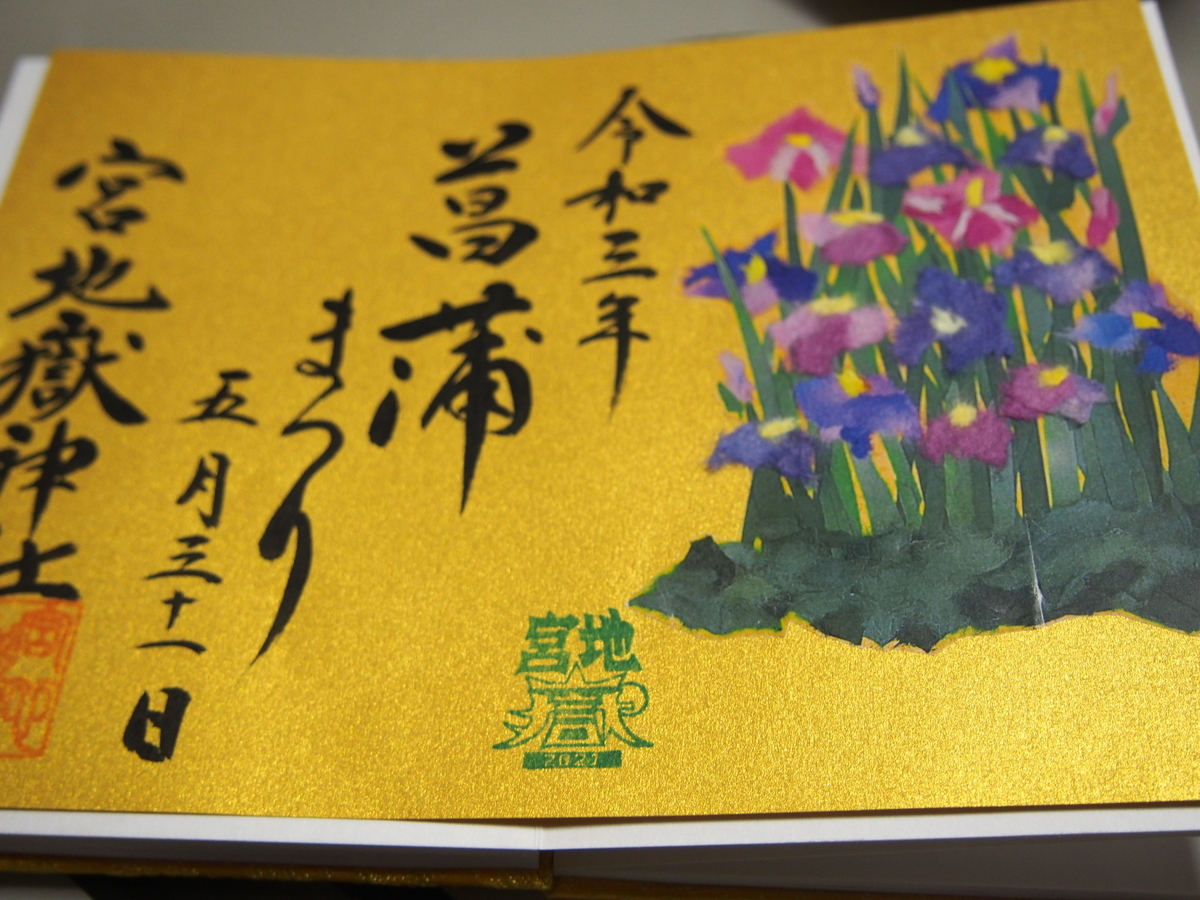 令和三年
菖蒲
まつり
五月三十一日
宮地嶽神社
宮地
嶽